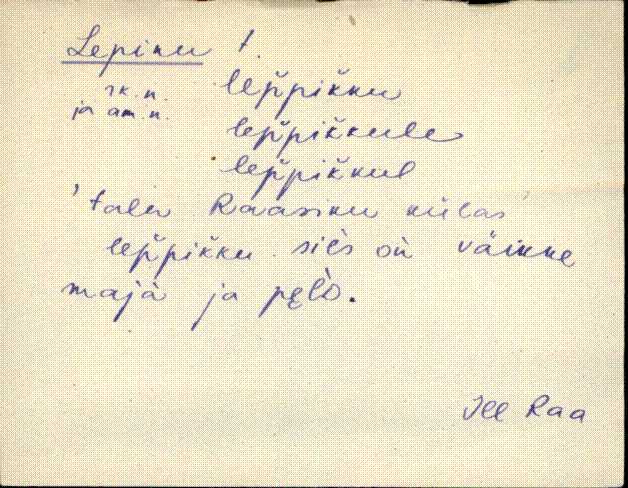 Lepiku t.
rk. n. lep̆pik̆ku
ja am. n.
lep̆pik̆kule
lep̆pik̆kul
'talu Raasiku külas'
lep̆pik̆ku siès oǹ väikke
majà ja pe̬lò.
Jll Raa